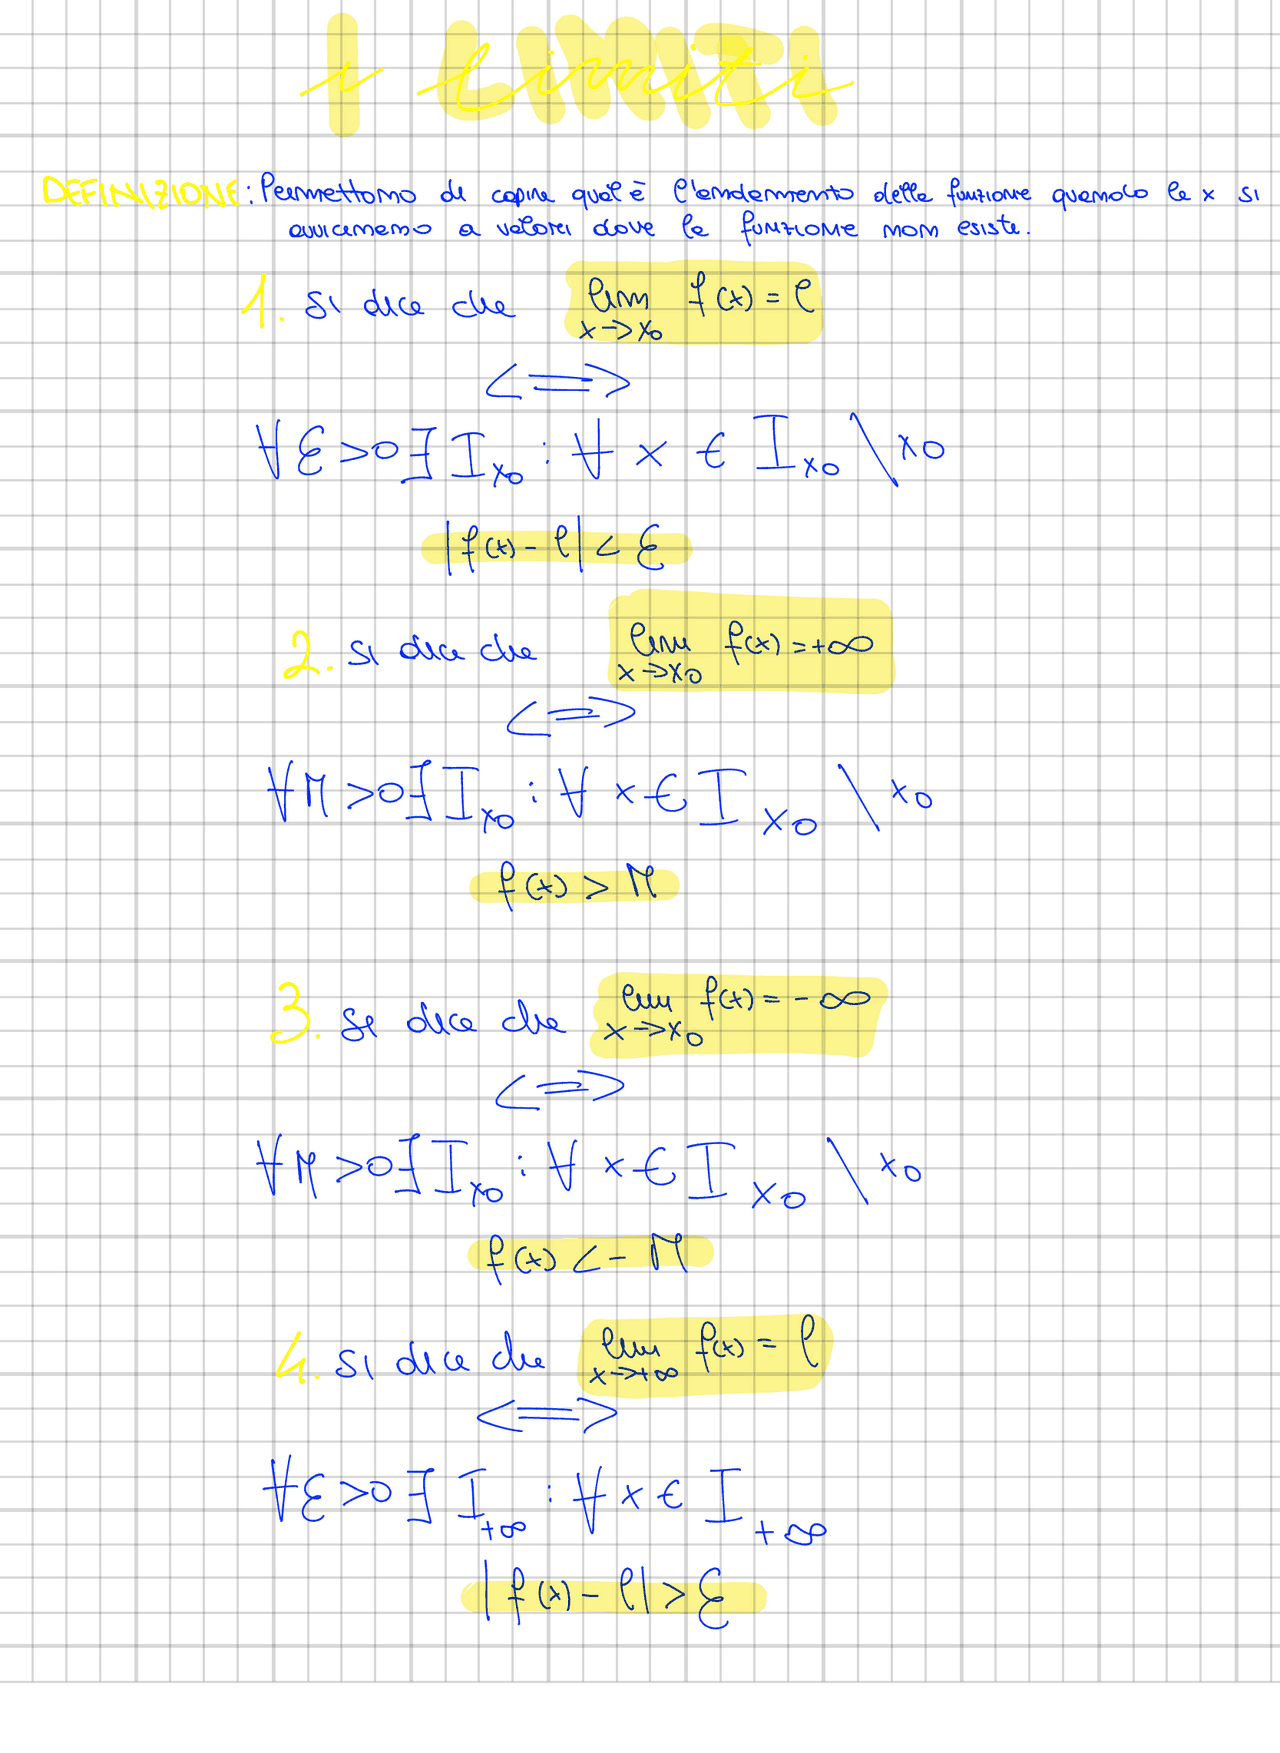 I LIMITI
DEFINIZIONE: Permettono di capire qual è l'andamento della funzione quando le x si
avvicinano a valori dove la funzione non esiste.
1. Si dice che lim f(x) = l
x->x0
<=>
∀ε>0∃ I x0 : ∀ x ∈ I x0 \ x0
|f(x) - l| < ε
2. Si dice che lim f(x) = +∞
x->x0
<=>
∀M >0∃ I x0 : ∀ x ∈ I x0 \ x0
f(x) > M
3. Si dice che lim f(x) = -∞
x->x0
<=>
∀M >0∃ I x0 : ∀ x ∈ I x0 \ x0
f(x) < - M
4. Si dice che lim f(x) = l
x->+∞
<=>
∀ε>0∃ I +∞ : ∀ x ∈ I +∞
|f(x) - l| > ε